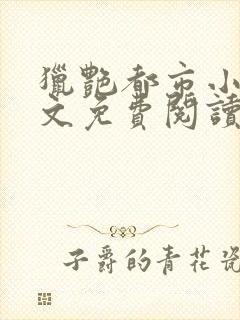 獵艷都市小
文免費閱讀
子爵的青花瓷